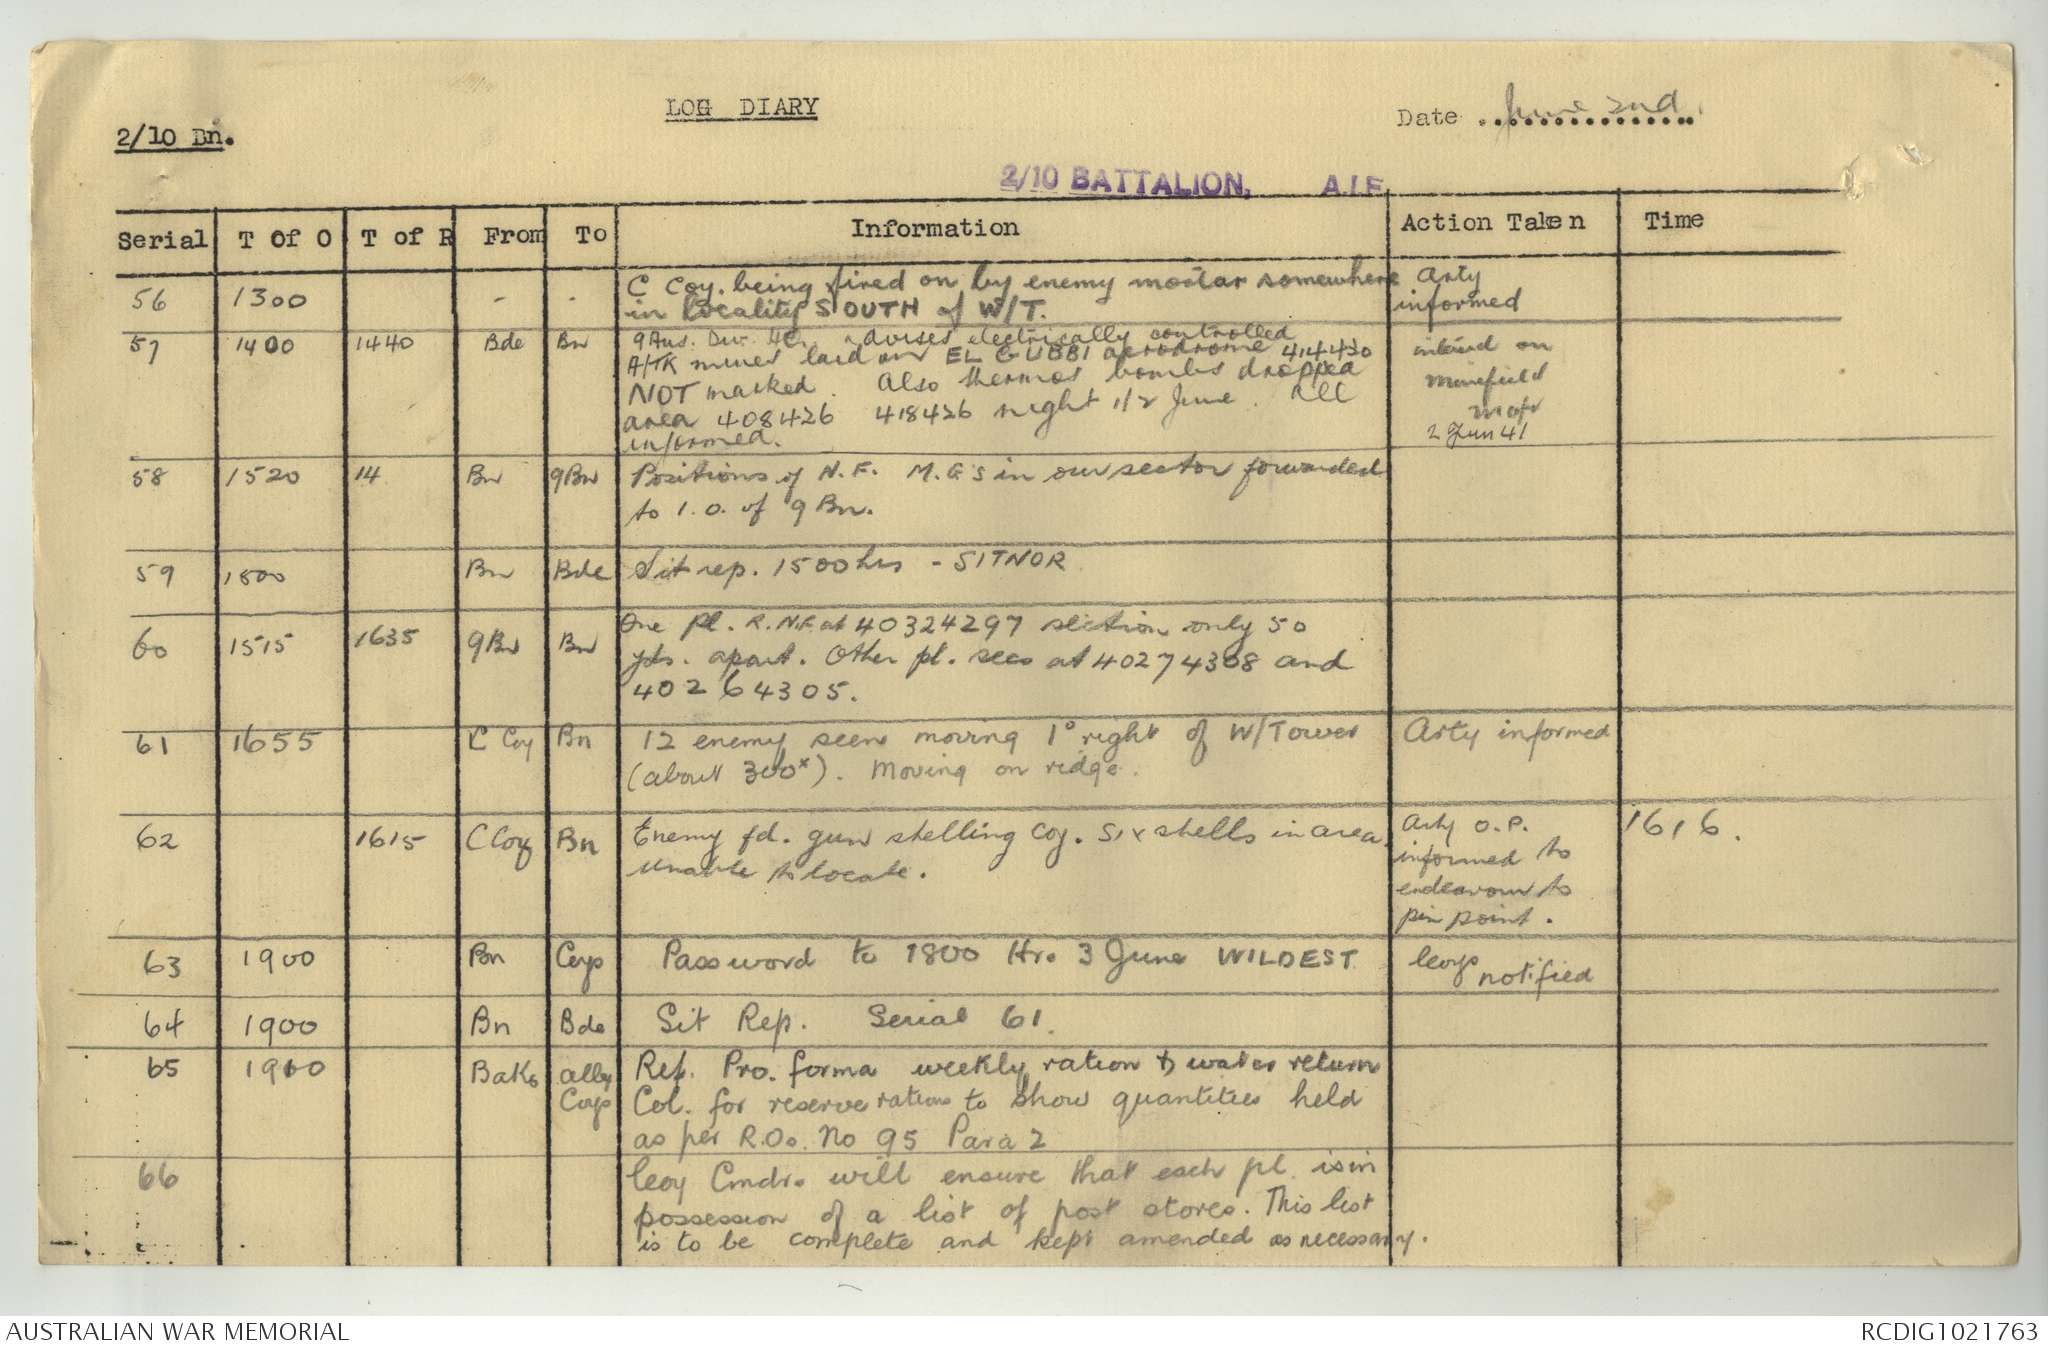 LOG DIARY
Date June 2nd.
2/10 Bn.
2/10 BATTALION, A.I.F.
Serial T Of O T of R From To Information Action Taken Time
56 1300 - - C Coy. being fired on by enemy mortar somewhere Arty
in locality SOUTH of W/T. informed
57 1400 1440 Bde Bn 9 Aus. Div. advises electrically controlled
A/TK mines laid on EL GUBBI aerodrome 414430 on
NOT marked. Also thermos bombs dropped Minefield
area 408426 418426 night 1/2 June. All map
informed. 2 Jun 41
58 1520 14 Bn 9Bn Positions of N.F. M.G's in our sector forwarded
to I.O. of 9 Bn.
59 1500 Bn Bde Sit rep. 1500 hrs - SITNOR
60 1515 1635 9Bn Bn One pl. R.N.F. at 40324297 section only 50
yds. apart. Other pl. secs at 40274308 and
40264305.
61 1655 C Coy Bn 12 enemy seen moving 1° right of W/Tower Arty informed
(about 300x). Moving on ridge.
62 1615 C Coy Bn Enemy fd. gun shelling Coy. Six shells in area, Arty O.P. 1616.
unable to locate. informed to
endeavour to
pin point.
63 1900 Bn Coys Password to 1800 Hrs 3 June WILDEST Coys
notified
64 1900 Bn Bde Sit Rep. Serial 61.
65 1900 Bako all Ref. Pro. forma weekly ration & water return
Coys Col. for reserve rations to show quantities held
as per R.Os. No 95 Para 2
66 Coy Cmdrs will ensure that each pl. is in
possession of a list of post stores. This list
is to be complete and kept amended as necessary.
AUSTRALIAN WAR MEMORIAL RCDIG1021763